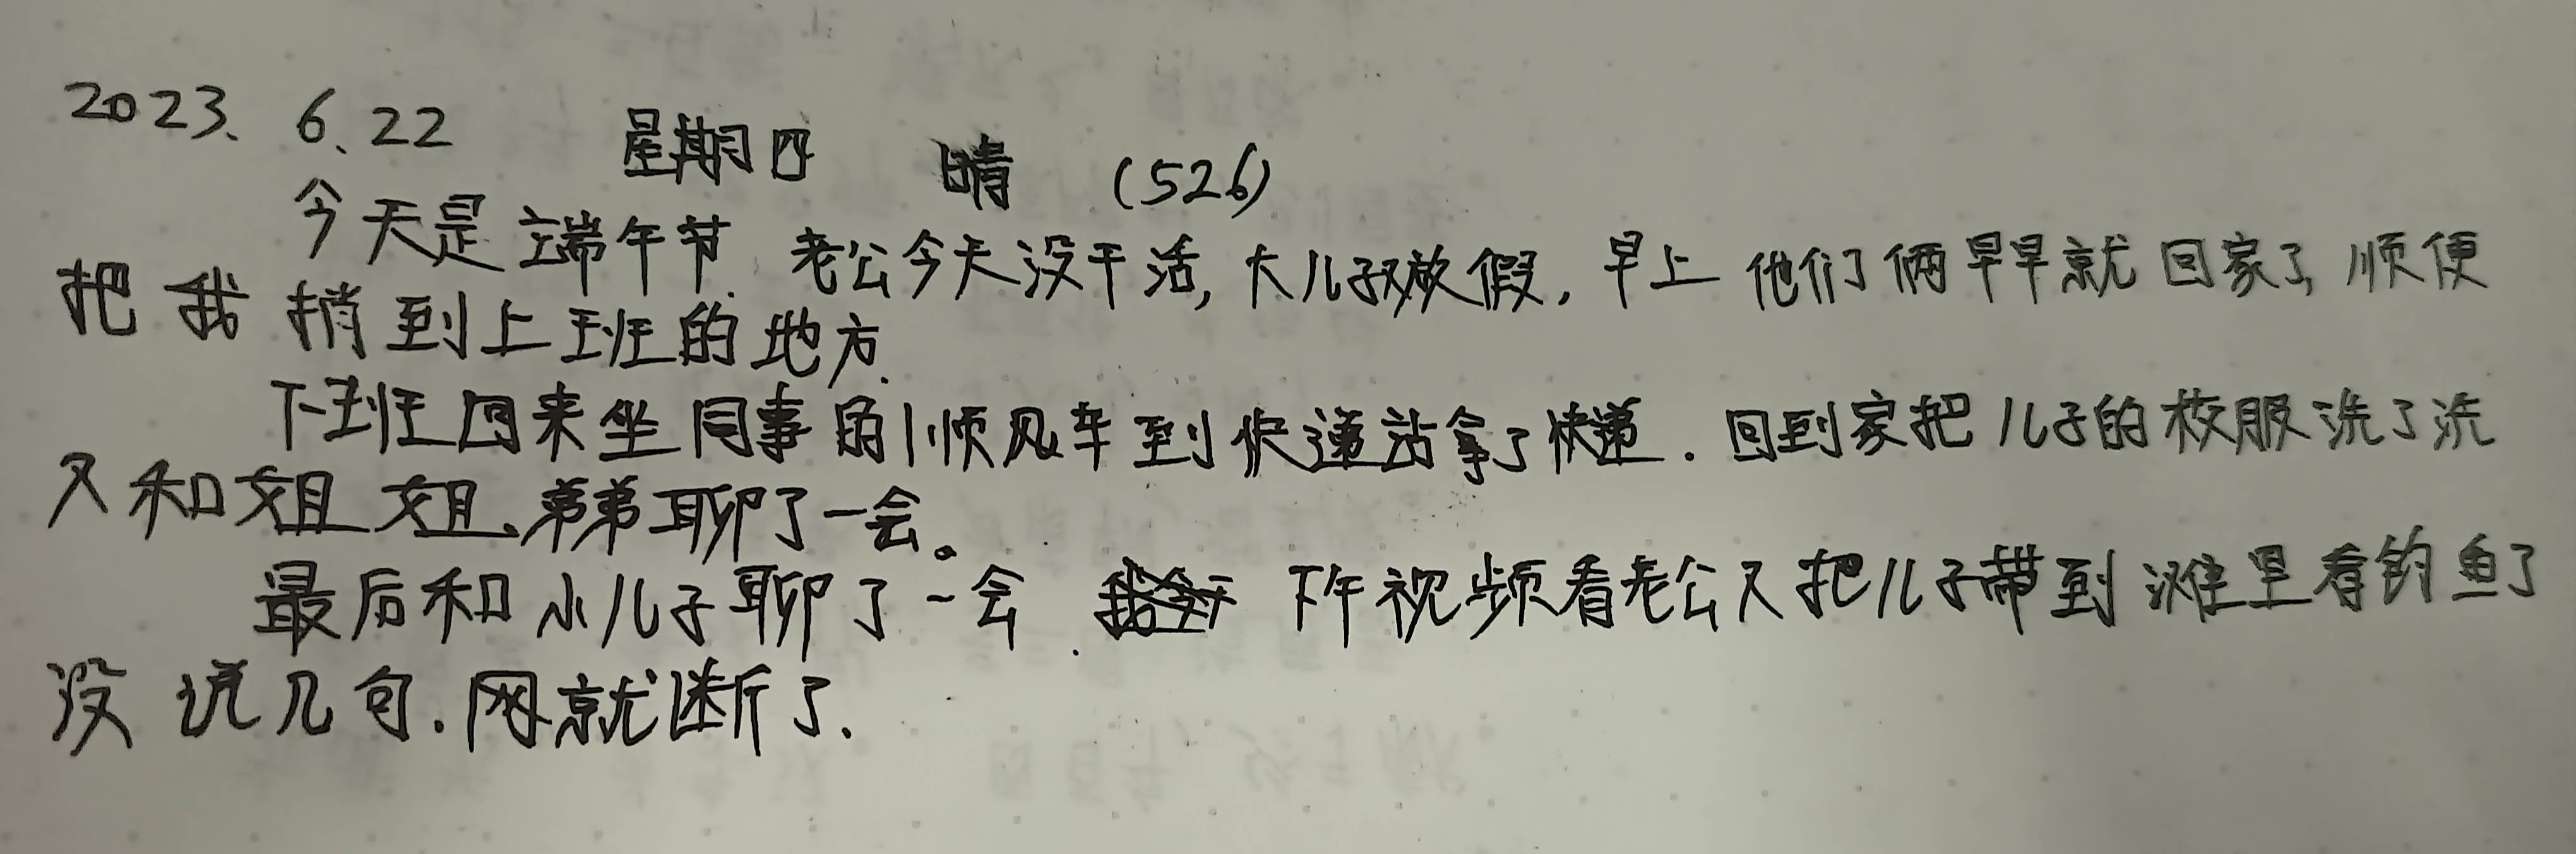 2023、6、22 星期四 晴 (526)
今天是端午节. 老公今天没干活, 大儿子放假, 早上他们俩早早就回家了, 顺便
把我捎到上班的地方.
下班回来坐同事的顺风车到快递站拿了快递. 回到家把儿子的校服洗了洗
又和姐姐、弟弟聊了一会。
最后和小儿子聊了一会. 下午视频看老公又把儿子带到滩里看钓鱼了
没说几句. 网就断了.